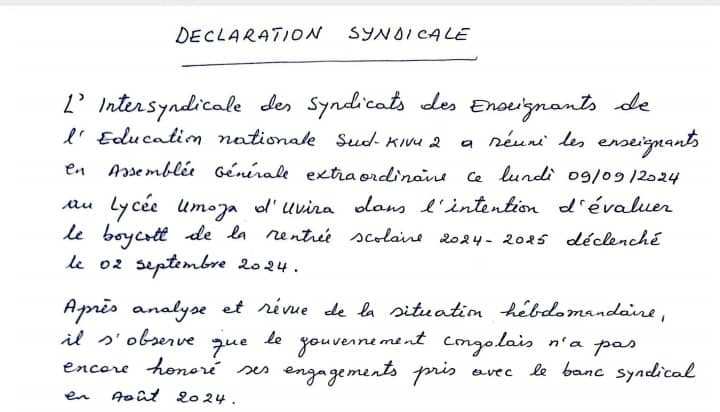 DECLARATION SYNDICALE
L'Intersyndicale des Syndicats des Enseignants de
l'Education nationale Sud-KIVU 2 a réuni les enseignants
en Assemblée Générale extraordinaire ce lundi 09/09/2024
au Lycée Umoja d'Uvira dans l'intention d'évaluer
le boycott de la rentrée scolaire 2024-2025 déclenché
le 02 septembre 2024.
Après analyse et révue de la situation hébdomandaire,
il s'observe que le gouvernement congolais n'a pas
encore honoré ses engagements pris avec le banc syndical
en Août 2024.